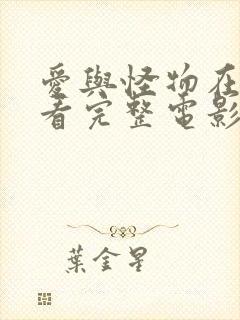 愛與怪物在
看完整電影
葉金星